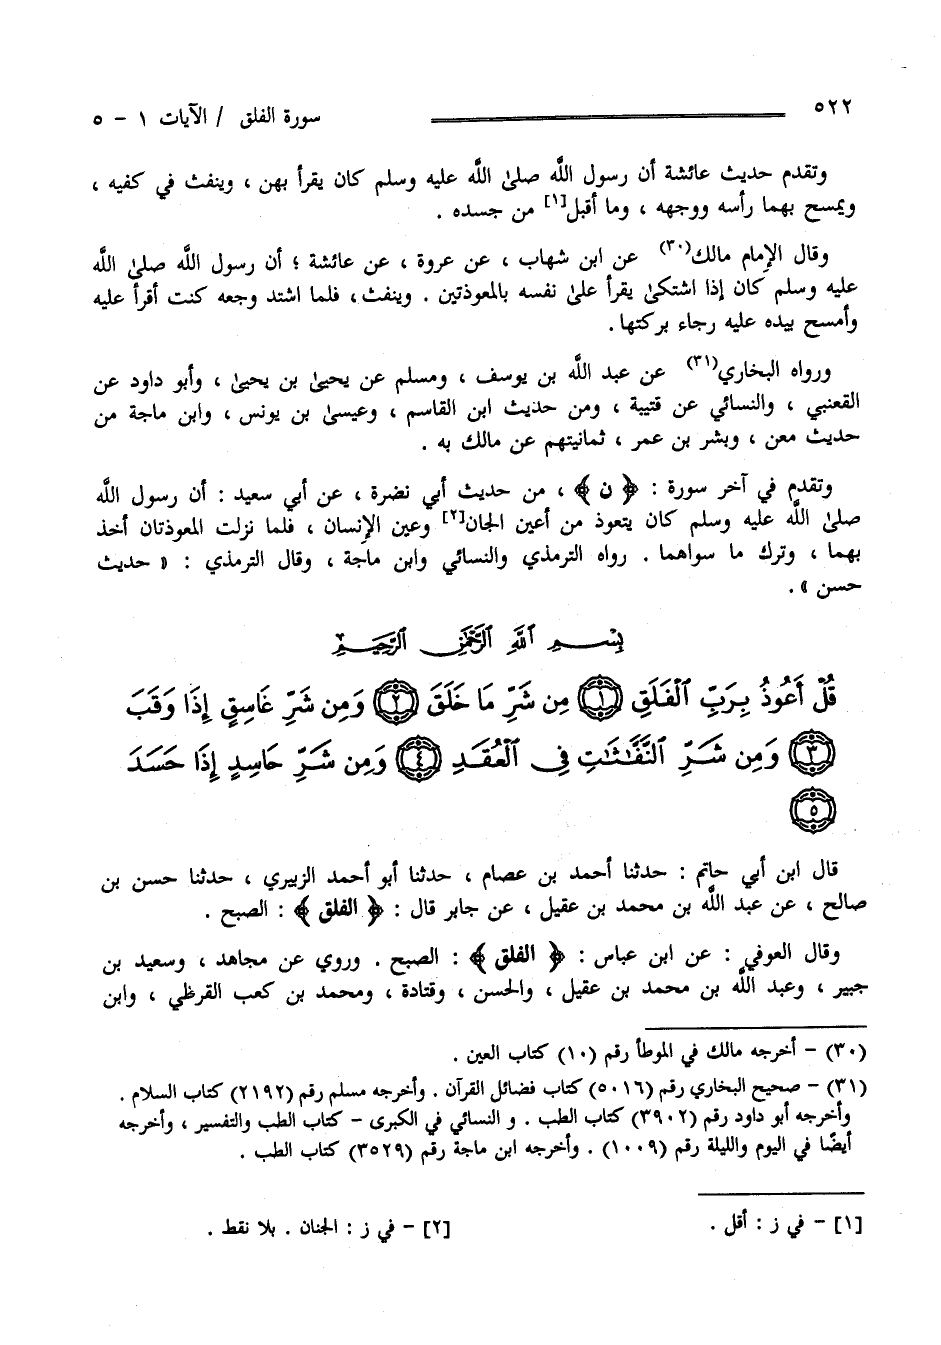 ٥٢٢ سورة الفلق / الآيات ١ - ٥
وتقدم حديث عائشة أن رسول اللَّه صلىٰ اللَّه عليه وسلم كان يقرأ بهن ، وينفث في كفيه ،
ويمسح بهما رأسه ووجهه ، وما أقبل[١] من جسده .
وقال الإمام مالك(٣٠) عن ابن شهاب ، عن عروة ، عن عائشة ؛ أن رسول اللَّه صلىٰ اللَّه
عليه وسلم كان إذا اشتكىٰ يقرأ علىٰ نفسه بالمعوذتين . وينفث ، فلما اشتد وجعه كنت أقرأ عليه
وأمسح بيده عليه رجاء بركتها .
ورواه البخاري(٣١) عن عبد اللَّه بن يوسف ، ومسلم عن يحيىٰ بن يحيىٰ ، وأبو داود عن
القعنبي ، والنسائي عن قتيبة ، ومن حديث ابن القاسم ، وعيسىٰ بن يونس ، وابن ماجة من
حديث معن ، وبشر بن عمر ، ثمانيتهم عن مالك به .
وتقدم في آخر سورة : ﴿ ن ﴾ ، من حديث أبي نضرة ، عن أبي سعيد : أن رسول اللَّه
صلىٰ اللَّه عليه وسلم كان يتعوذ من أعين الجان[٢] وعين الإنسان ، فلما نزلت المعوذتان أخذ
بهما ، وترك ما سواهما . رواه الترمذي والنسائي وابن ماجة ، وقال الترمذي : « حديث
حسن » .
بِسْمِ ٱللَّهِ ٱلرَّحْمَٰنِ ٱلرَّحِيمِ
قُلْ أَعُوذُ بِرَبِّ ٱلْفَلَقِ ١ مِن شَرِّ مَا خَلَقَ ٢ وَمِن شَرِّ غَاسِقٍ إِذَا وَقَبَ
٣ وَمِن شَرِّ ٱلنَّفَّٰثَٰتِ فِى ٱلْعُقَدِ ٤ وَمِن شَرِّ حَاسِدٍ إِذَا حَسَدَ
٥
قال ابن أبي حاتم : حدثنا أحمد بن عصام ، حدثنا أبو أحمد الزبيري ، حدثنا حسن بن
صالح ، عن عبد اللَّه بن محمد بن عقيل ، عن جابر قال : ﴿ الفلق ﴾ : الصبح .
وقال العوفي : عن ابن عباس : ﴿ الفلق ﴾ : الصبح . وروي عن مجاهد ، وسعيد بن
جبير ، وعبد اللَّه بن محمد بن عقيل ، والحسن ، وقتادة ، ومحمد بن كعب القرظي ، وابن
(٣٠) - أخرجه مالك في الموطأ رقم (١٠) كتاب العين .
(٣١) - صحيح البخاري رقم (٥٠١٦) كتاب فضائل القرآن . وأخرجه مسلم رقم (٢١٩٢) كتاب السلام .
وأخرجه أبو داود رقم (٣٩٠٢) كتاب الطب . و النسائي في الكبرى - كتاب الطب والتفسير ، وأخرجه
أيضًا في اليوم والليلة رقم (١٠٠٩) . وأخرجه ابن ماجة رقم (٣٥٢٩) كتاب الطب .
[١] - في ز : أقل . [٢] - في ز : الجنان . بلا نقط .